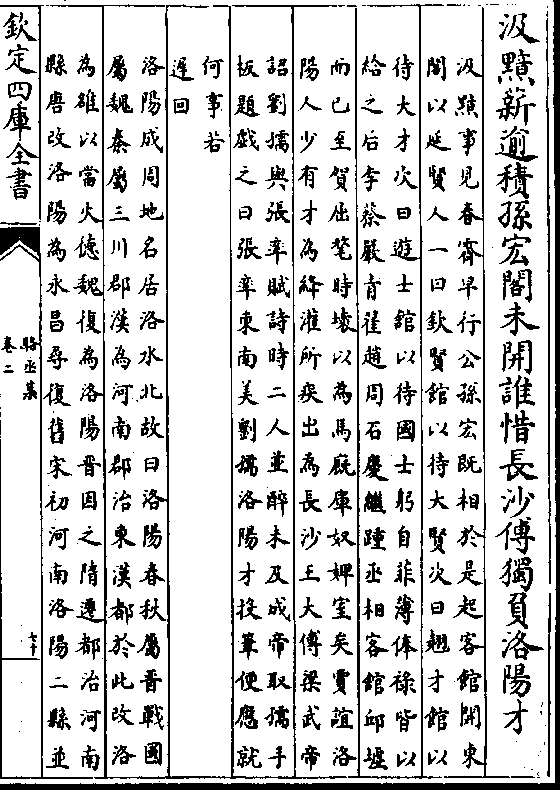 汲黯薪逾積孫宏閤未開誰惜長沙傅獨負洛陽才
汲黯事見春霽早行公孫宏既相於是起客館開東
閤以延賢人一曰欽賢館以待大賢次曰翹才館以
待大才次曰遊士館以待國士躬自菲薄俸祿皆以
給之后李蔡嚴青翟趙周石慶繼踵丞相客館邱墟
而已至賀屈氂時壞以為馬廐庫奴婢室矣賈誼洛
陽人少有才為絳灌所疾出為長沙王大傅梁武帝
詔劉孺與張率賦詩時二人並醉未及成帝取孺手
板題戲之曰張率東南美劉孺洛陽才投筆便應就
何事若
遲回
洛陽成周地名居洛水北故曰洛陽春秋屬晉戰國
屬魏秦屬三川郡漢為河南郡治東漢都於此改洛
為雒以當火德魏復為洛陽晉因之隋遷都治河南
縣唐改洛陽為永昌尋復舊宋初河南洛陽二縣並
欽定四庫全書
駱丞集
卷二
七十